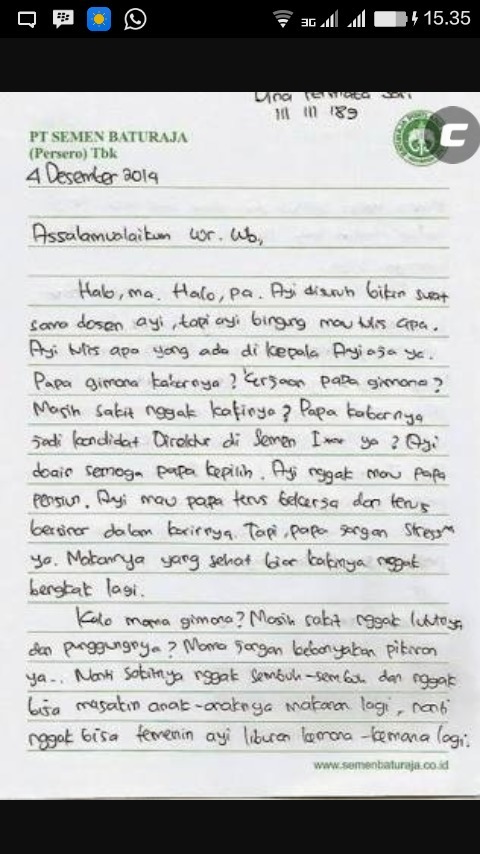 3G
15.35
111 111 189
PT SEMEN BATURAJA
(Persero) Tbk
4 Desember 2014
Assalamualaikum Wr. Wb,
Halo, ma. Halo, pa. Ayi disuruh bikin surat
sama dosen ayi, tapi ayi bingung mau tulis apa.
Ayi tulis apa yang ada di kepala Ayi aja ya.
Papa gimana kabarnya? Kerjaan papa gimana?
Masih sakit nggak kakinya? Papa kabarnya
jadi kandidat Direktur di Semen I*** ya? Ayi
doain semoga papa kepilih. Ayi nggak mau papa
pensiun. Ayi mau papa terus bekerja dan terus
bersinar dalam karirnya. Tapi, papa jangan stress"
ya. Makannya yang sehat biar kakinya nggak
bengkak lagi.
Kalo mama gimana? Masih sakit nggak lututnya
dan punggungnya? Mama jangan kebanyakan pikiran
ya.. Nanti sakitnya nggak sembuh-sembuh dan nggak
bisa masakin anak-anaknya makanan lagi, nanti
nggak bisa temenin ayi liburan kemana-kemana lagi.
www.semenbaturaja.co.id